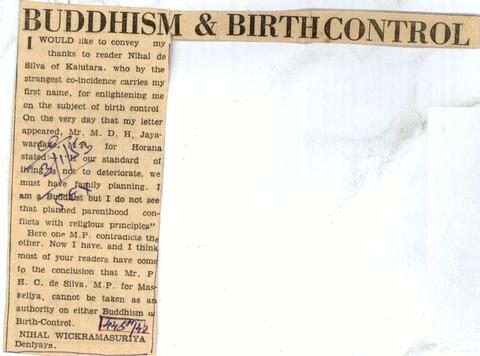 BUDDHISM & BIRTHCONTROL
I WOULD like to convey my
thanks to reader Nihal de
Silva of Kalutara, who by the
strangest co-incidence carries my
first name, for enlightening me
on the subject of birth control
On the very day that my letter
appeared, Mr. M. D. H. Jaya-
wardane, M.P. for Horana
stated: "If our standard of
living is not to deteriorate, we
must have family planning. I
am a Buddhist but I do not see
that planned parenthood con-
flicts with religious principles"
Here one M.P. contradicts the
other. Now I have, and I think
most of your readers have come
to the conclusion that Mr. P
H. C. de Silva. M.P. for Mas-
keliya, cannot be taken as an
authority on either Buddhism or
Birth-Control.
NIHAL WICKRAMASURIYA
Deniyaya.